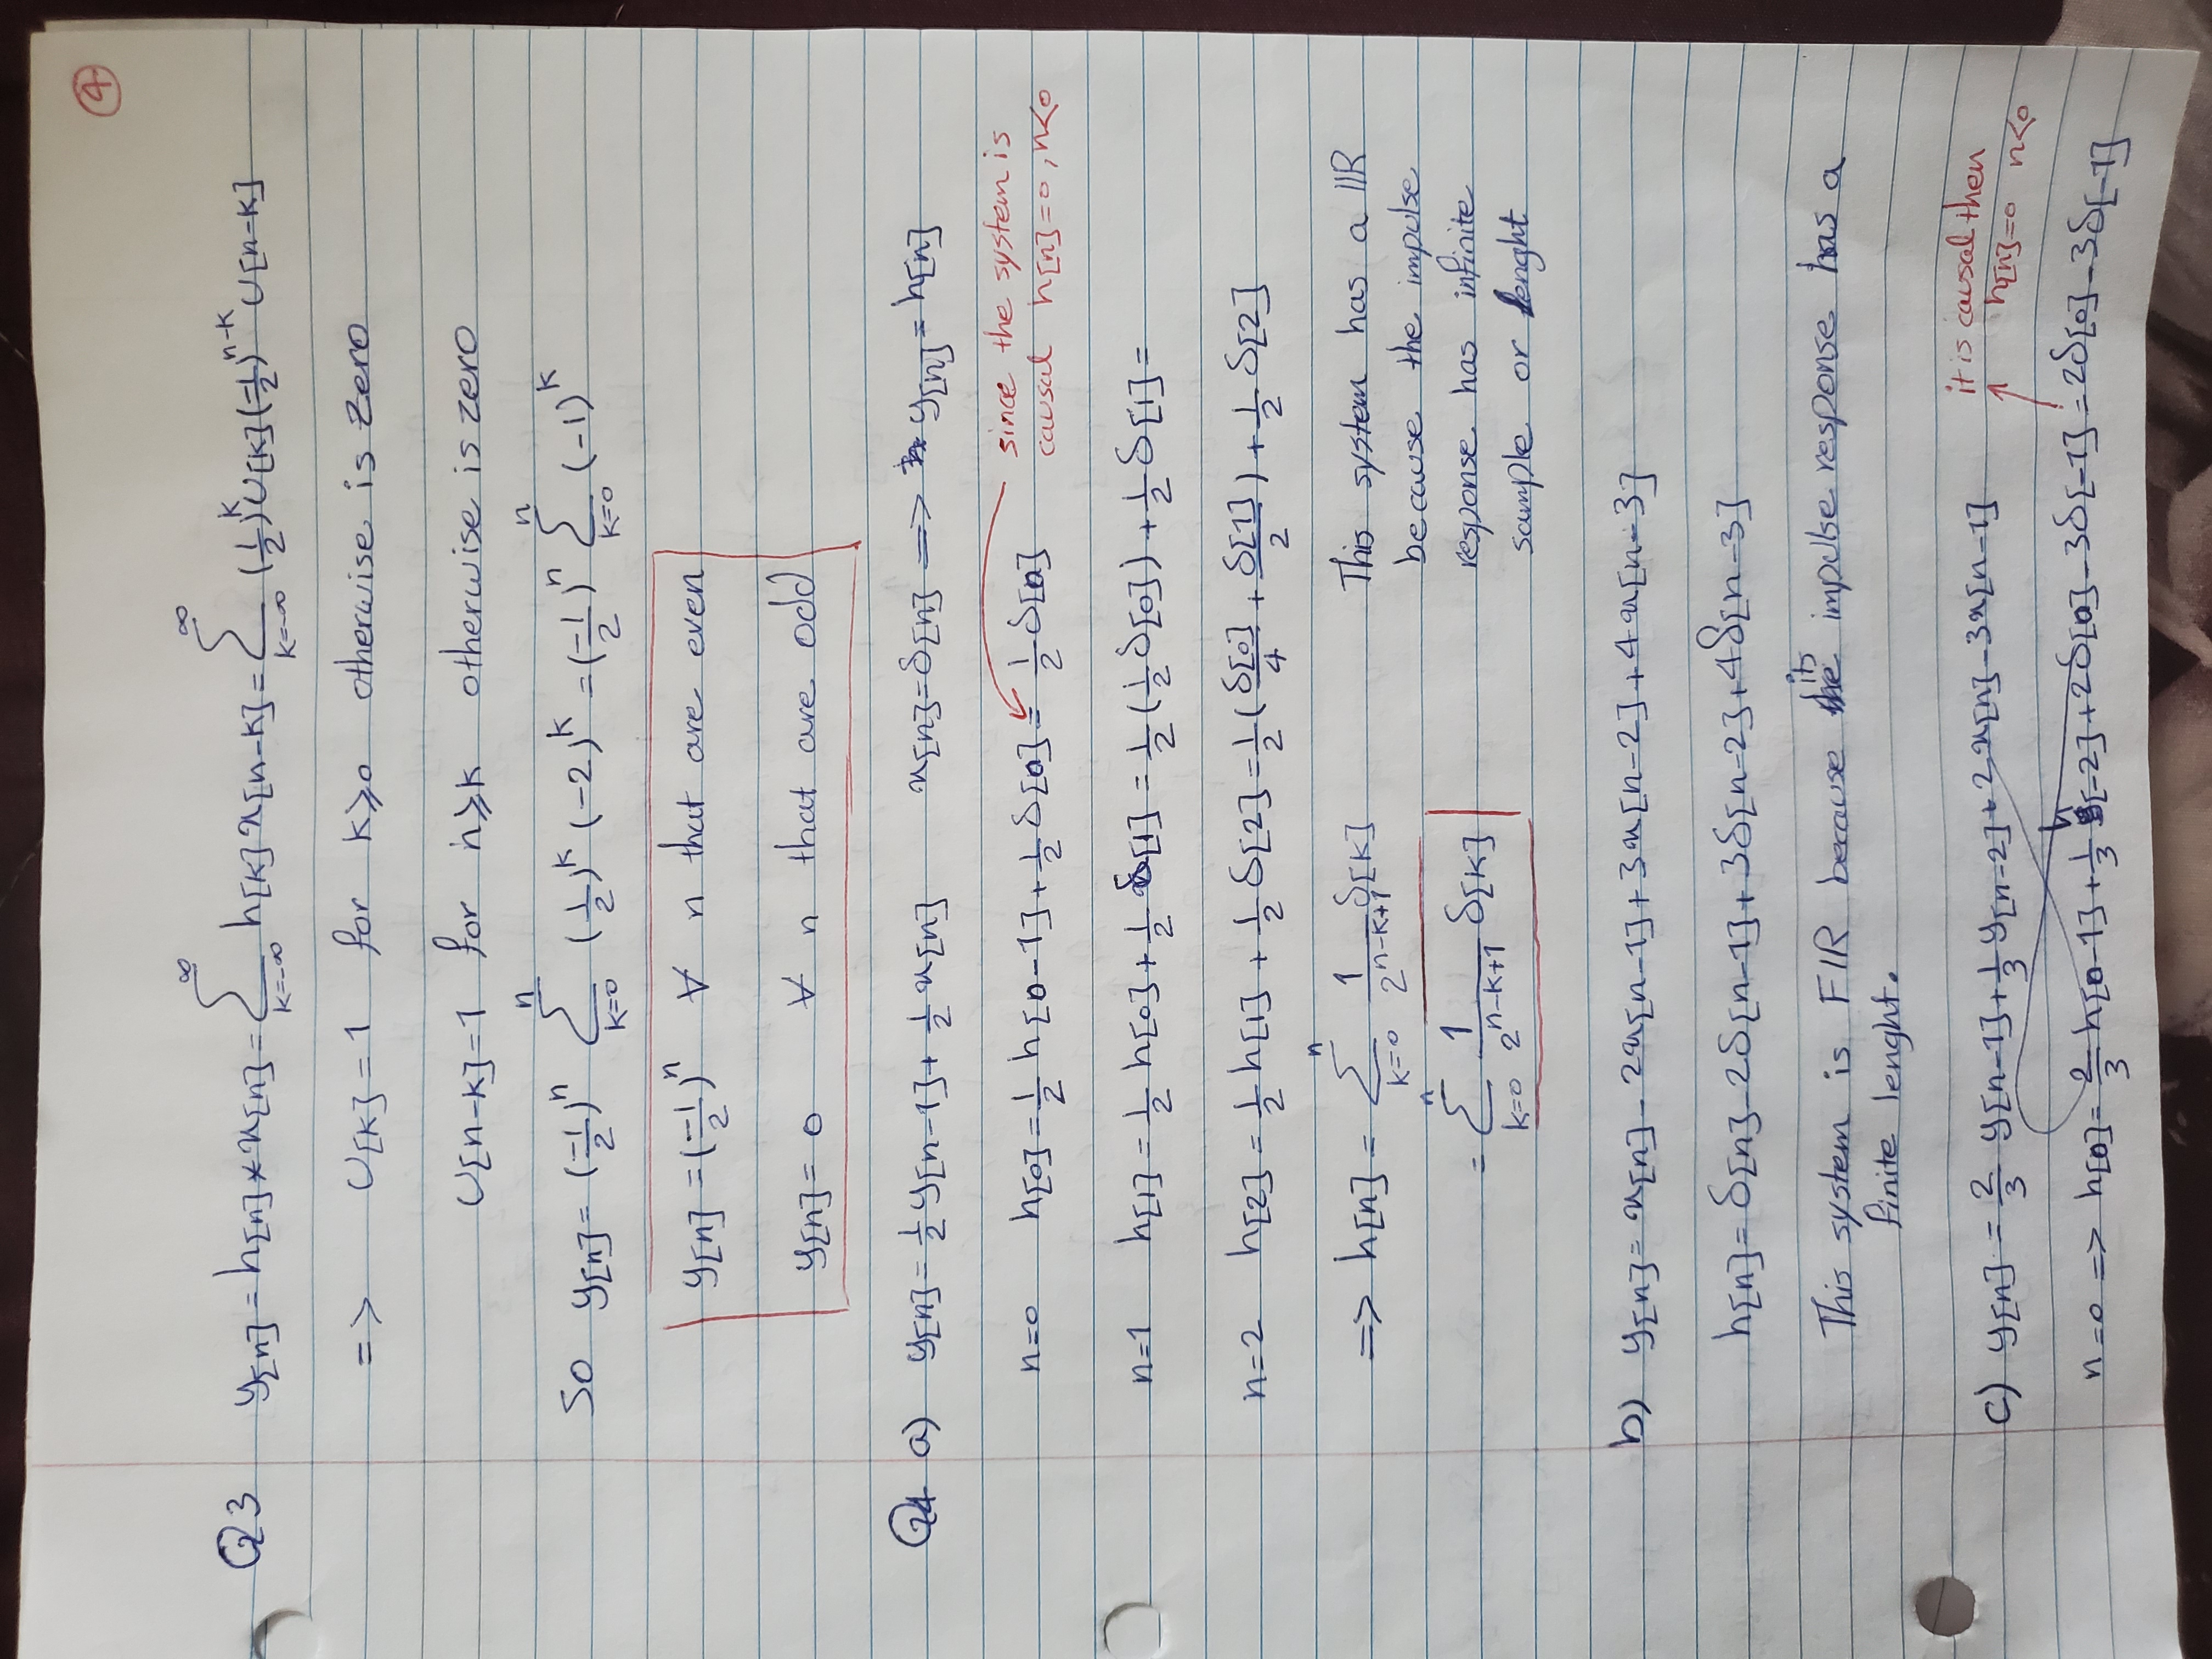 ④
Q3 y[n] = h[n] * x[n] = Σ_{k=-∞}^{∞} h[k] x[n-k] = Σ_{k=-∞}^{∞} (1/2)^k U[k] (-1/2)^{n-k} U[n-k]
=> U[k] = 1 for k≥0 otherwise is zero
U[n-k] = 1 for n≥k otherwise is zero
So y[n] = (-1/2)^n Σ_{k=0}^{n} (1/2)^k (-2)^k = (-1/2)^n Σ_{k=0}^{n} (-1)^k
y[n] = (-1/2)^n ∀ n that are even
y[n] = 0 ∀ n that are odd
Q4 a) y[n] = 1/2 y[n-1] + 1/2 x[n] x[n] = δ[n] => y[n] = h[n]
n=0 h[0] = 1/2 h[0-1] + 1/2 δ[0] = 1/2 δ[0]
since the system is
causal h[n]=0, n<0
n=1 h[1] = 1/2 h[0] + 1/2 δ[1] = 1/2 (1/2 δ[0]) + 1/2 δ[1] =
n=2 h[2] = 1/2 h[1] + 1/2 δ[2] = 1/2 (δ[0]/4 + δ[1]/2) + 1/2 δ[2]
=> h[n] = Σ_{k=0}^{n} 1/2^{n-k+1} δ[k]
= Σ_{k=0}^{n} 1/2^{n-k+1} δ[k]
This system has a IIR
because the impulse
response has infinite
sample or lenght
b) y[n] = x[n] - 2x[n-1] + 3x[n-2] + 4x[n-3]
h[n] = δ[n] - 2δ[n-1] + 3δ[n-2] + 4δ[n-3]
This system is FIR because its impulse response has a
finite lenght.
c) y[n] = 2/3 y[n-1] + 1/3 y[n-2] + 2x[n] - 3x[n-1]
it is causal then
h[n]=0 n<0
n=0 => h[0] = 2/3 h[0-1] + 1/3 h[-2] + 2δ[0] - 3δ[-1] = 2δ[0] - 3δ[-1]